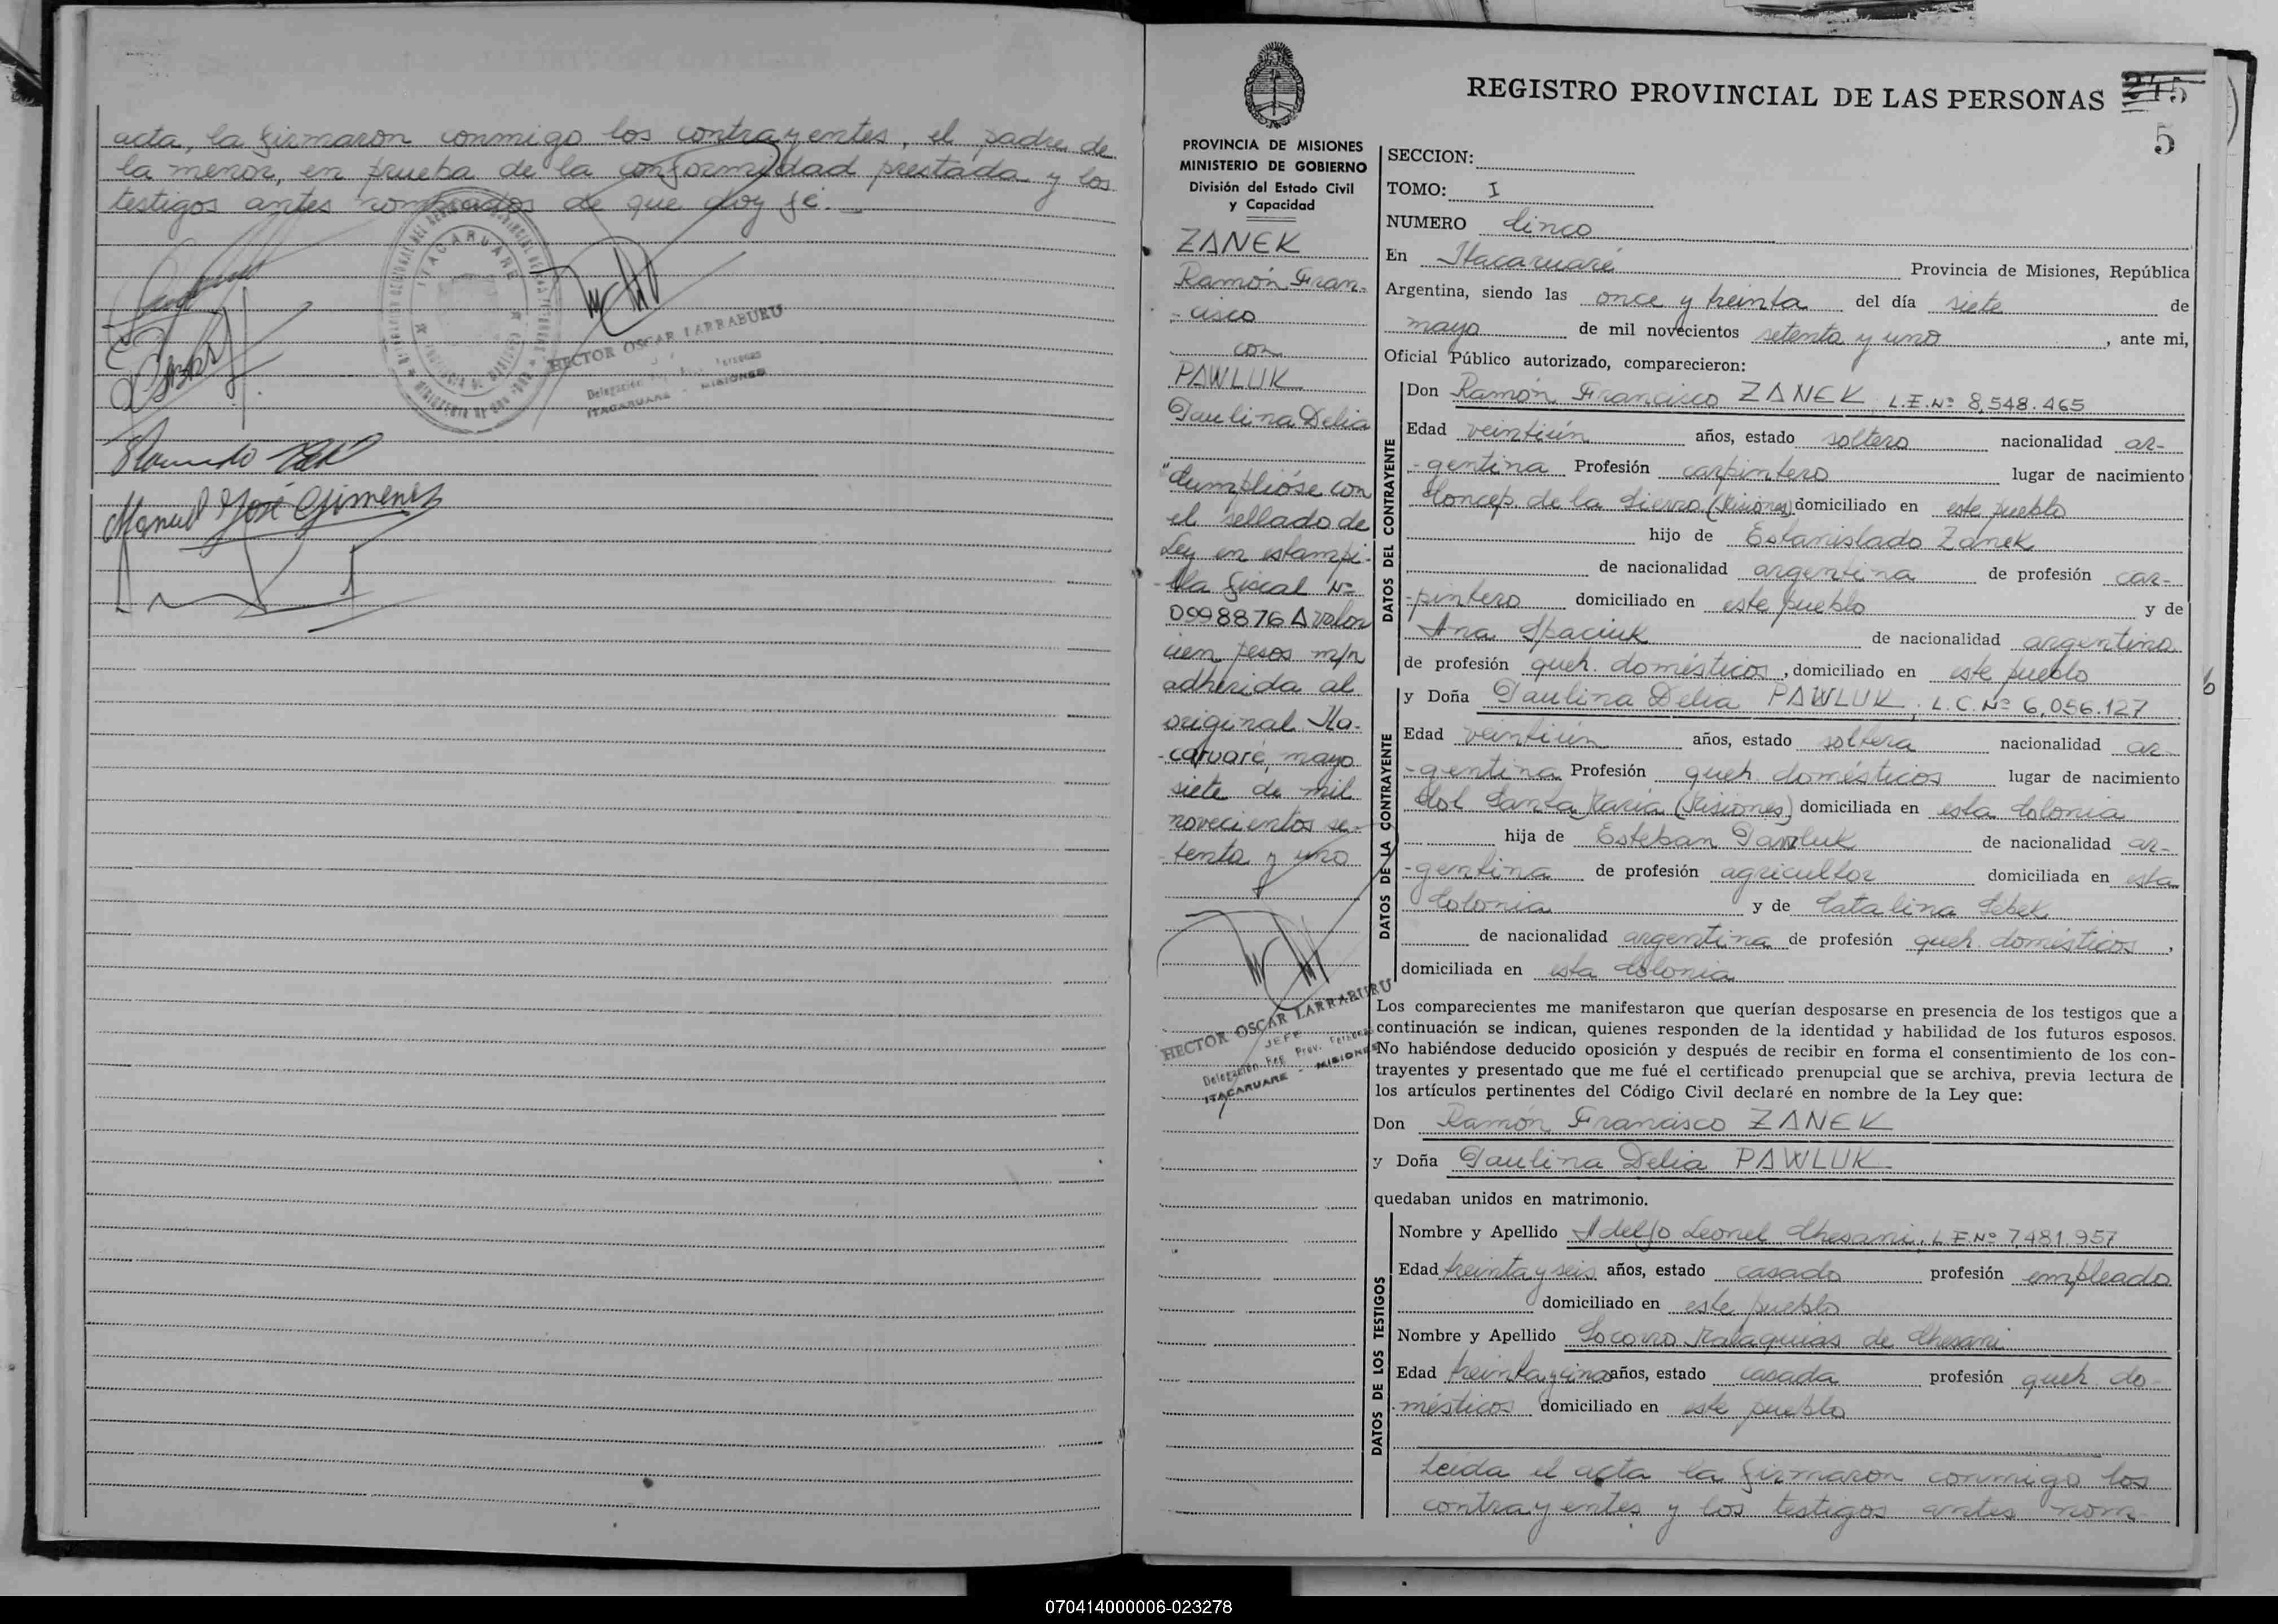 acta, la firmaron conmigo los contrayentes, el padre de
la menor, en prueba de la conformidad prestada y los
testigos antes nombrados de que doy fé.
ITACARUARE
HECTOR OSCAR LARRABURU
Delegación
ITACARUARE - MISIONES
Manuel José Gimenez
PROVINCIA DE MISIONES
MINISTERIO DE GOBIERNO
División del Estado Civil
y Capacidad
ZANEK
Ramón Fran-
-cisco
con
PAWLUK
Paulina Delia
"Cumplióse con
el sellado de
Ley en estampi-
-lla fiscal Nº
0998876 A valor
cien pesos m/n
adherida al
original. Ita-
-caruaré, mayo
siete de mil
novecientos se-
-tenta y uno
HECTOR OSCAR LARRABURU
JEFE
Delegación Reg. Prov. Personas
ITACARUARE - MISIONES
REGISTRO PROVINCIAL DE LAS PERSONAS 245
5
SECCION:
TOMO: I
NUMERO Cinco
En Itacaruaré Provincia de Misiones, República
Argentina, siendo las once y treinta del día siete de
mayo de mil novecientos setenta y uno, ante mi,
Oficial Público autorizado, comparecieron:
DATOS DEL CONTRAYENTE
Don Ramón Francisco ZANEK, L.E.Nº 8,548.465
Edad veintiún años, estado soltero nacionalidad ar-
-gentina Profesión carpintero lugar de nacimiento
Concep. de la Sierra (Misiones) domiciliado en este pueblo
hijo de Estanislado Zanek
de nacionalidad argentina de profesión car-
-pintero domiciliado en este pueblo y de
Ana Spaciuk de nacionalidad argentina
de profesión queh. domésticos, domiciliado en este pueblo
DATOS DE LA CONTRAYENTE
y Doña Paulina Delia PAWLUK, L.C.Nº 6,056.127
Edad veintiún años, estado soltera nacionalidad ar-
-gentina Profesión queh. domésticos lugar de nacimiento
Col. Santa María (Misiones) domiciliada en esta Colonia
hija de Esteban Pawluk de nacionalidad ar-
-gentina de profesión agricultor domiciliada en esta
Colonia y de Catalina Sebek
de nacionalidad argentina de profesión queh. domésticos,
domiciliada en esta Colonia
Los comparecientes me manifestaron que querían desposarse en presencia de los testigos que a
continuación se indican, quienes responden de la identidad y habilidad de los futuros esposos.
No habiéndose deducido oposición y después de recibir en forma el consentimiento de los con-
trayentes y presentado que me fué el certificado prenupcial que se archiva, previa lectura de
los artículos pertinentes del Código Civil declaré en nombre de la Ley que:
Don Ramón Francisco ZANEK
y Doña Paulina Delia PAWLUK
quedaban unidos en matrimonio.
DATOS DE LOS TESTIGOS
Nombre y Apellido Adelfo Leonel Chesani, L.E.Nº 7481.957
Edad treinta y seis años, estado casado profesión empleado
domiciliado en este pueblo
Nombre y Apellido Socorro Malaquias de Chesani
Edad treinta y cinco años, estado casada profesión queh. do-
-mésticos domiciliado en este pueblo
Leída el acta la firmaron conmigo los
contrayentes y los testigos antes nom-
6
070414000006-023278